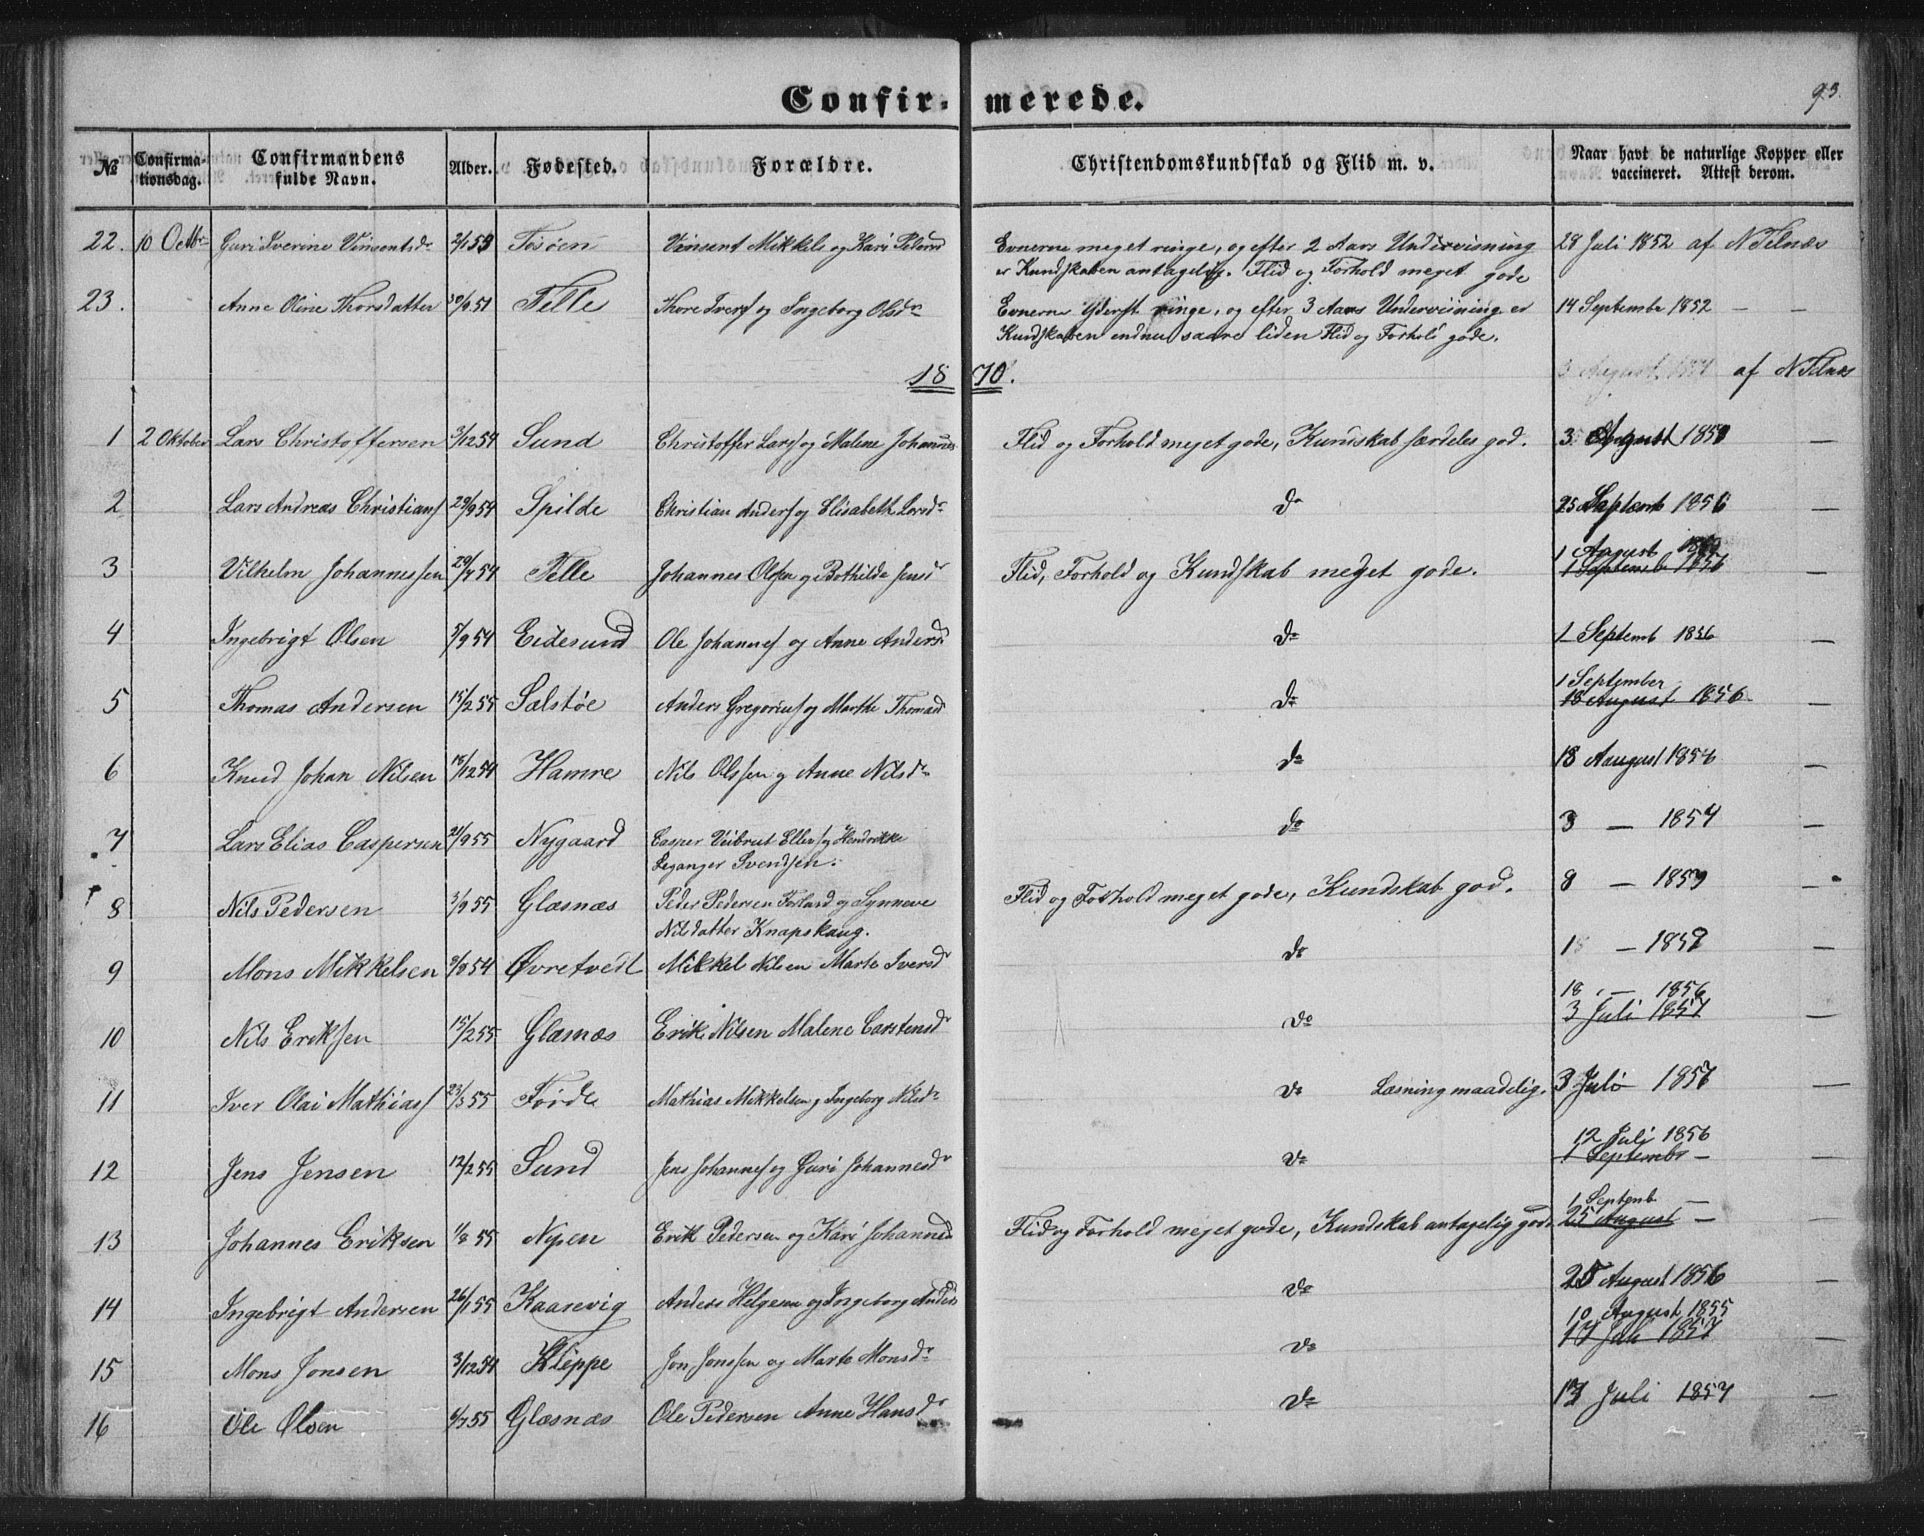 Confir- merede.
93.
No Confirma-tionsdag. Confirmandens fulde Navn. Alder. Fødested. Forældre. Christendomskundskab og Flid m. v. Naar havt de naturlige Kopper eller vaccineret. Attest derom.
22. 10 Octbr Guri Iverine Vinsentsdr 2/1 53 Tøsøen Vinsent Mikkels og Kari Petersd Evnerne meget ringe, og efter 2 Aars Underviisning 28 Juli 1852 af N Telnæs
er Kundskaben antagelig. Flid og Forhold meget gode
23. Anne Oline Thorsdatter 30/9 51 Telle Thore Ivers og Ingeborg Olsdr Evnerne yderst ringe, og efter 3 Aars Underviisning er 14 September 1852 — —
Kundskaben endnu saare liden Flid og Forhold gode.
1870.
3 August 1854 af N Telnæs
1 2 Oktober Lars Christoffersen 3/12 54 Sund Christoffer Lars og Malene Johannes Flid og Forhold meget gode, Kundskab særdeles god. 3 August 185 —
2 Lars Andreas Christians 29/9 54 Spilde Christian Anders og Elisabeth Larsdr do 25 Septemb 1856 —
3 Vilhelm Johannessen 29/7 54 Telle Johannes Olsen og Bothilde Jensd Flid, Forhold og Kundskab meget gode. 1 August
1 Septemb 1856
4 Ingebrigt Olsen 5/9 54 Eidesund Ole Johannes og Anne Andersd do 1 Septemb 1856 —
1 September
5 Thomas Andersen 15/2 55 Sælstøe Anders Gregorius og Marthe Thomasd do 18 August 1856 —
6 Knud Johan Nilsen 18/12 54 Hamre Nils Olssen og Anne Nilsdr do 18 Aaugust 1856 —
7 Lars Elias Caspersen 21/9 55 Nygaard Casper Ellers og Hendrikke do 3 — 1857 —
Leganger Svendsen.
8 Nils Pedersen 3/9 55 Glæsnæs Peder Pedersen Forland og Synneve Flid og Forhold meget gode, Kundskab god. 8 — 1859 —
Nilsdatter Knapskaug.
9 Mons Mikkelsen 9/8 54 Øvretvedt Mikkel Nilsen Marte Iversd do 18 — 1857 —
18 — 1856
10 Nils Eriksen 15/2 55 Glæsnæs Erik Nilsen Malene Carstensd do 3 Juli 1857 —
11 Iver Olai Mathias 23/3 55 Førde Mathias Mikkelsen og Ingeborg Nilsdr do Læsning maadelig. 3 Juli 1857 —
12 Juli 1856
12 Jens Jensen 12/2 55 Sund Jens Johannes og Guri Johannesd do 1 Septembr —
1 Septenb. —
13 Johannes Eriksen 1/8 55 Nipen Erik Pedersen og Kari Johannesd Flid og Forhold meget gode, Kundskab antagelig god. 25 August —
14 Ingebrigt Andersen 26/1 55 Kaarevig Anders Helgesen og Ingeborg Anders do 25 August 1856 —
10 August 1855
15 Mons Jonsen 3/12 54 Kleppe Jon Jonssen og Marte Monsdr do 17 Juli 1857 —
16 Ole Olsen 6/7 55 Glæsnæs Ole Pedersen Anne Hansdr do 17 Juli 1857 —